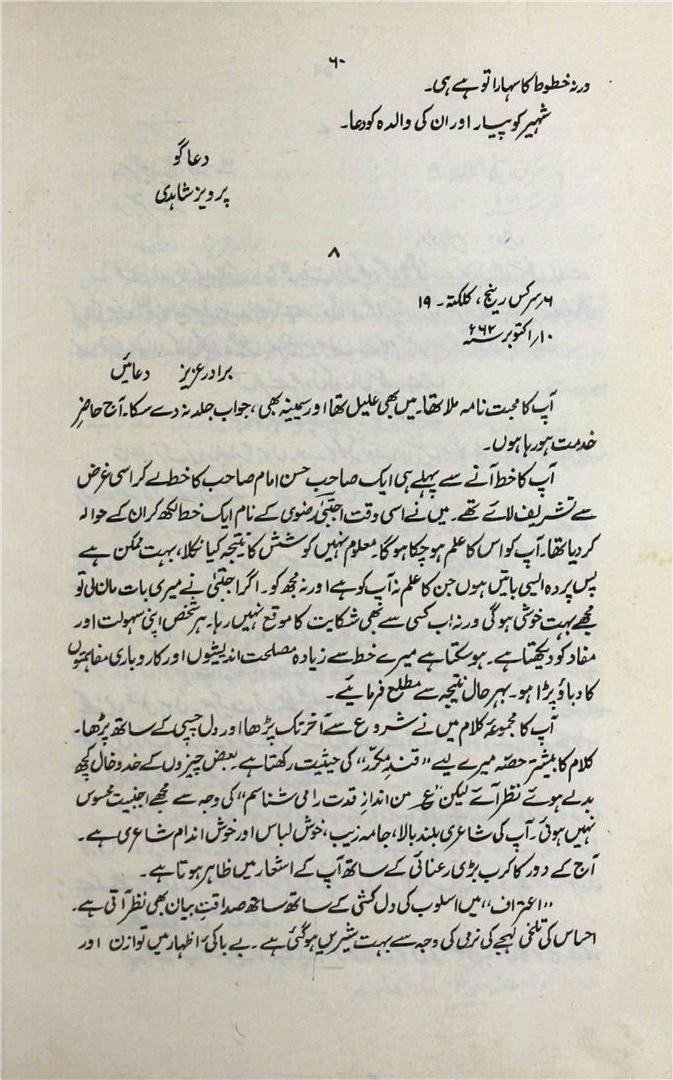 ۶۰
ورنہ خطوط کا سہارا تو ہے ہی۔
شہیر کو پیار اور ان کی والدہ کو دعا۔
دعا گو
پرویز شاہدی
۸
۶؍ سرکس رینج، کلکتہ۔ ۱۹
۱۰؍ اکتوبر ۶۶۲ء
برادر عزیز دعائیں
آپ کا محبت نامہ ملا تھا۔ میں بھی علیل تھا اور سیمینہ بھی، جواب جلد نہ دے سکا۔ آج حاضر
خدمت ہو رہا ہوں۔
آپ کا خط آنے سے پہلے ہی ایک صاحب حسن امام صاحب کا خط لے کر اسی غرض
سے تشریف لائے تھے۔ میں نے اسی وقت اجتبیٰ رضوی کے نام ایک خط لکھ کر ان کے حوالہ
کر دیا تھا۔ آپ کو اس کا علم ہو چکا ہوگا۔ معلوم نہیں کوشش کا نتیجہ کیا نکلا، بہت ممکن ہے
پس پردہ ایسی باتیں ہوں جن کا علم نہ آپ کو ہے اور نہ مجھ کو۔ اگر اجتبیٰ نے میری بات مان لی تو
مجھے بہت خوشی ہوگی ورنہ اب کسی سے بھی شکایت کا موقع نہیں رہا۔ ہر شخص اپنی سہولت اور
مفاد کو دیکھتا ہے۔ ہو سکتا ہے میرے خط سے زیادہ مصلحت اندیشوں اور کاروباری مفاہمتوں
کا دباؤ پڑا ہو۔ بہر حال نتیجہ سے مطلع فرمائیے۔
آپ کا مجموعۂ کلام میں نے شروع سے آخر تک پڑھا اور دل چسپی کے ساتھ پڑھا۔
کلام کا بیشتر حصہ میرے لیے "قند مکرر" کی حیثیت رکھتا ہے۔ بعض چیزوں کے خدوخال کچھ
بدلے ہوئے نظر آئے لیکن "ع من انداز قدت را می شناسم" کی وجہ سے مجھے اجنبیت محسوس
نہیں ہوئی۔ آپ کی شاعری بلند بالا، جامہ زیب، خوش لباس اور خوش اندام شاعری ہے۔
آج کے دور کا کرب بڑی رعنائی کے ساتھ آپ کے اشعار میں ظاہر ہوتا ہے۔
"اعتراف" میں اسلوب کی دل کشی کے ساتھ ساتھ صداقت بیان بھی نظر آتی ہے۔
احساس کی تلخی لہجے کی نرمی کی وجہ سے بہت شیریں ہو گئی ہے۔ بے باکیٔ اظہار میں توازن اور